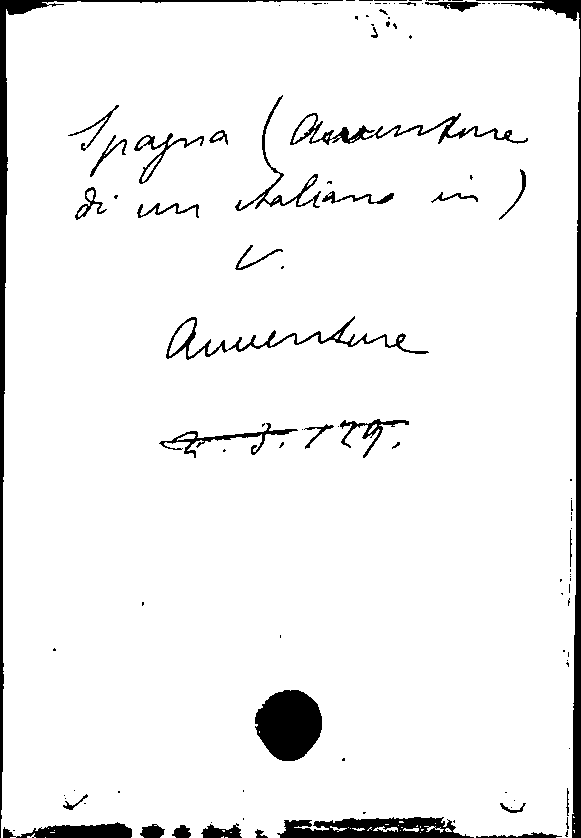 Spagna (Avventure
di un italiano in)
V.
Avventure
2. 3. 129.